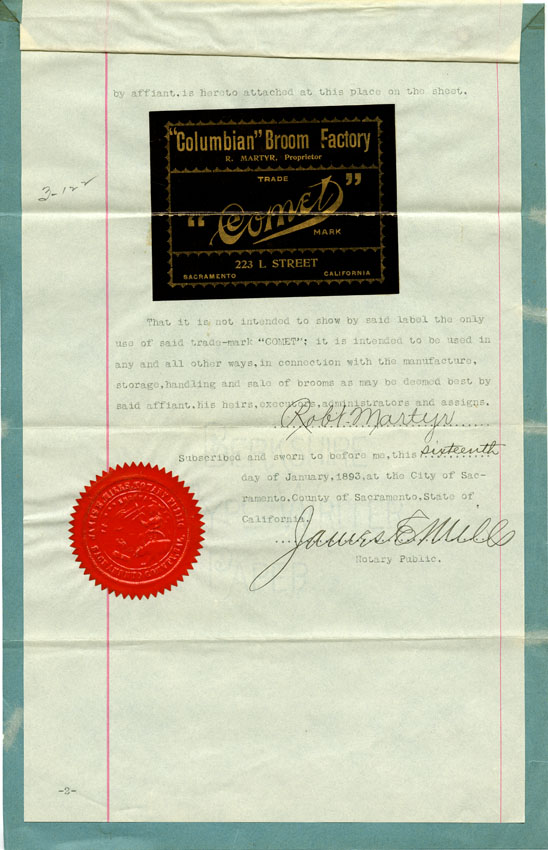 by affiant.is hereto attached at this place on the sheet.
"Columbian" Broom Factory
R. MARTYR, Proprietor
TRADE
"Comet"
MARK
223 L STREET
SACRAMENTO CALIFORNIA
3-122
That it is not intended to show by said label the only
use of said trade-mark "COMET"; it is intended to be used in
any and all other ways, in connection with the manufacture,
storage,handling and sale of brooms as may be deemed best by
said affiant,his heirs,executors,administrators and assigns.
Robt. Martyr
Subscribed and sworn to before me,this sixteenth
day of January,1893,at the City of Sac-
ramento,County of Sacramento,State of
California.
James E. Mills
Notary Public.
NOTARY PUBLIC
-2-